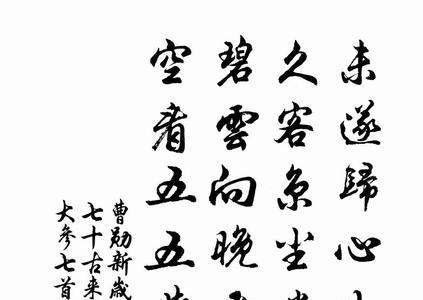 未遂歸心
久客京尘
碧雲向晚
空看五五
曹勛新歲
七十古来
大參七首